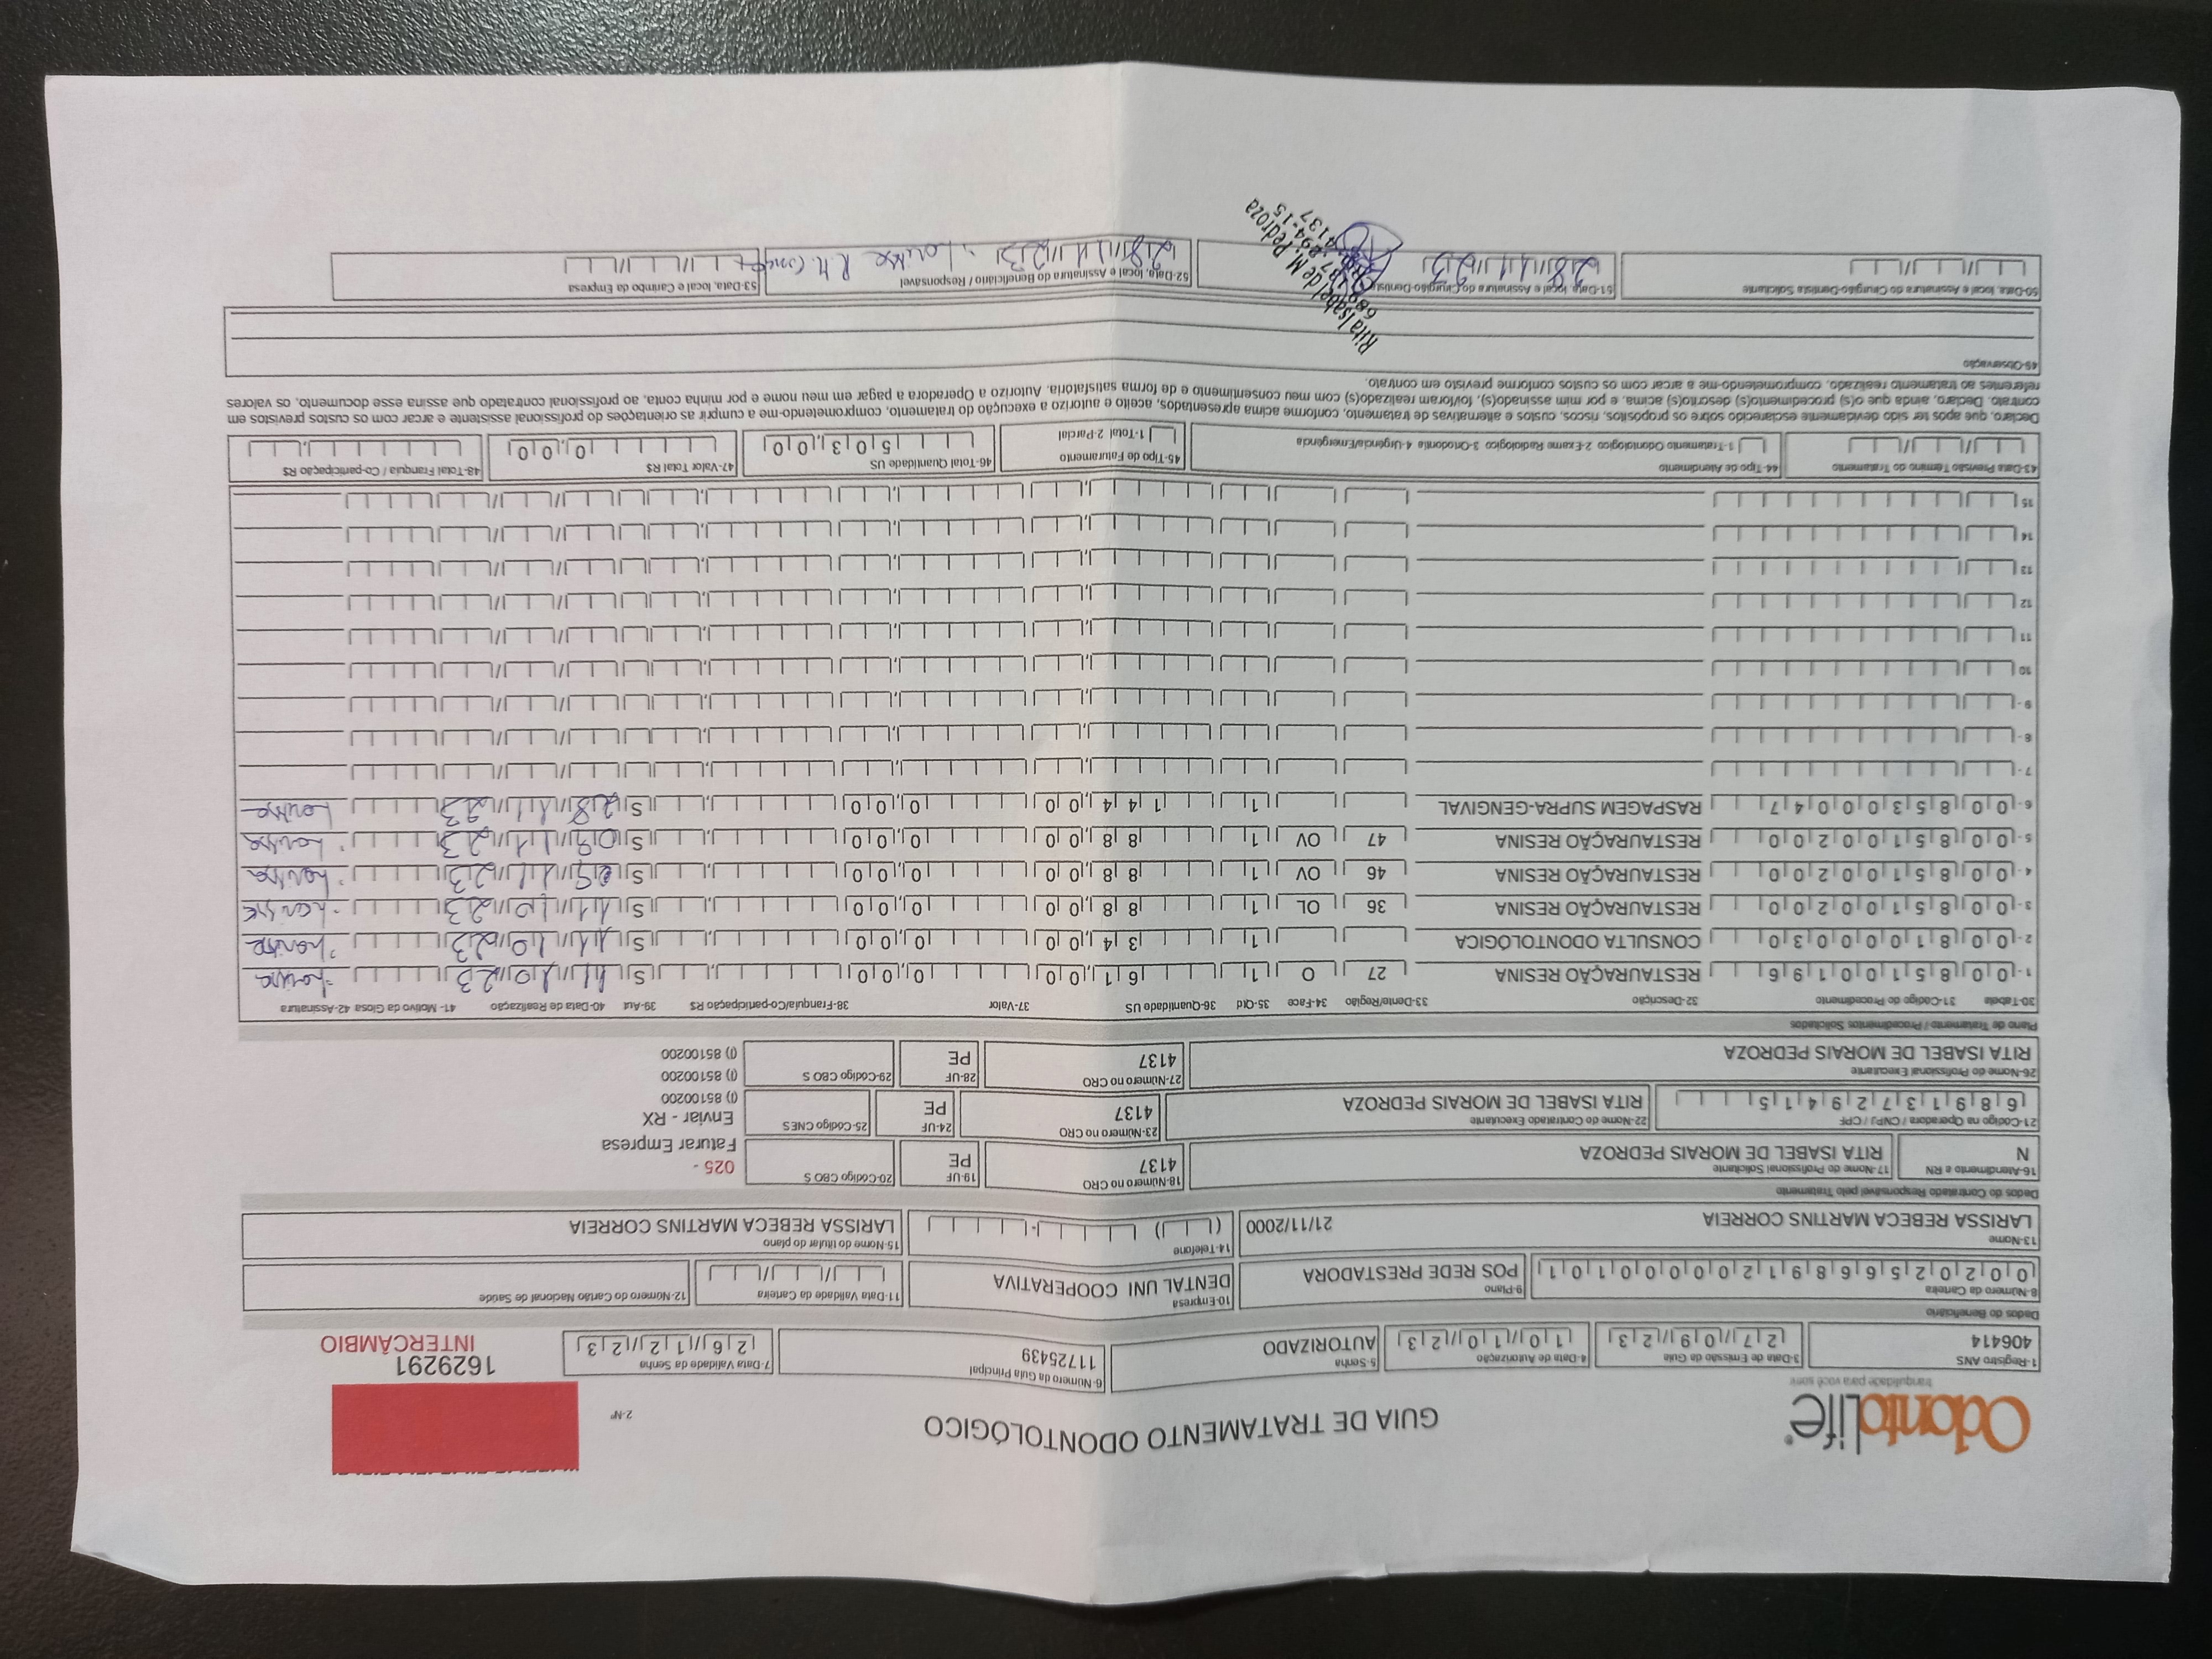 OdontoLife®
tranquilidade para você sorrir
GUIA DE TRATAMENTO ODONTOLÓGICO
2-Nº
1629291
INTERCÂMBIO
1-Registro ANS
406414
3-Data de Emissão da Guia
27/09/23
4-Data de Autorização
10/10/23
5-Senha
AUTORIZADO
6-Número da Guia Principal
11725439
7-Data Validade da Senha
26/12/23
Dados do Beneficiário
8-Número da Carteira
00202566891200000101
9-Plano
POS REDE PRESTADORA
10-Empresa
DENTAL UNI COOPERATIVA
11-Data Validade da Carteira
12-Número do Cartão Nacional de Saúde
13-Nome
LARISSA REBECA MARTINS CORREIA 21/11/2000
14-Telefone
15-Nome do titular do plano
LARISSA REBECA MARTINS CORREIA
Dados do Contratado Responsável pelo Tratamento
16-Atendimento a RN
N
17-Nome do Profissional Solicitante
RITA ISABEL DE MORAIS PEDROZA
18-Número no CRO
4137
19-UF
PE
20-Código CBO S
025 -
Faturar Empresa
Enviar - RX
(I) 85100200
(I) 85100200
(I) 85100200
21-Código na Operadora / CNPJ / CPF
68913729415
22-Nome do Contratado Executante
RITA ISABEL DE MORAIS PEDROZA
23-Número no CRO
4137
24-UF
PE
25-Código CNES
26-Nome do Profissional Executante
RITA ISABEL DE MORAIS PEDROZA
27-Número no CRO
4137
28-UF
PE
29-Código CBO S
Plano de Tratamento / Procedimentos Solicitados
30-Tabela 31-Código do Procedimento 32-Descrição 33-Dente/Região 34-Face 35-Qtd 36-Quantidade US 37-Valor 38-Franquia/Co-participação R$ 39-Aut 40-Data de Realização 41- Motivo da Glosa 42-Assinatura
1- 00 85100196 RESTAURAÇÃO RESINA 27 O 1 61,00 0,00 S 11/10/23 Larissa
2- 00 81000030 CONSULTA ODONTOLÓGICA 1 34,00 0,00 S 11/10/23 Larissa
3- 00 85100200 RESTAURAÇÃO RESINA 36 OL 1 88,00 0,00 S 11/10/23 Larissa
4- 00 85100200 RESTAURAÇÃO RESINA 46 OV 1 88,00 0,00 S 09/11/23 Larissa
5- 00 85100200 RESTAURAÇÃO RESINA 47 OV 1 88,00 0,00 S 09/11/23 Larissa
6- 00 85300047 RASPAGEM SUPRA-GENGIVAL 1 144,00 0,00 S 28/11/23 Larissa
7-
8-
9-
10
11
12
13
14
15
43-Data Previsão Término do Tratamento
44-Tipo de Atendimento
1-Tratamento Odontológico 2-Exame Radiológico 3-Ortodontia 4-Urgência/Emergência
45-Tipo de Faturamento
1-Total 2-Parcial
46-Total Quantidade US
503,00
47-Valor Total R$
0,00
48-Total Franquia / Co-participação R$
Declaro, que após ter sido devidamente esclarecido sobre os propósitos, riscos, custos e alternativas de tratamento, conforme acima apresentados, aceito e autorizo a execução do tratamento, comprometendo-me a cumprir as orientações do profissional assistente e arcar com os custos previstos em
contrato. Declaro, ainda que o(s) procedimento(s) descrito(s) acima, e por mim assinado(s), foi/foram realizado(s) com meu consentimento e de forma satisfatória. Autorizo a Operadora a pagar em meu nome e por minha conta, ao profissional contratado que assina esse documento, os valores
referentes ao tratamento realizado, comprometendo-me a arcar com os custos conforme previsto em contrato.
49-Observação
50-Data, local e Assinatura do Cirurgião-Dentista Solicitante
51-Data, local e Assinatura do Cirurgião-Dentista
28/11/23
Rita Isabel de M. Pedroza
4137
52-Data, local e Assinatura do Beneficiário / Responsável
28/11/23 Larissa R. M. Correia
53-Data, local e Carimbo da Empresa